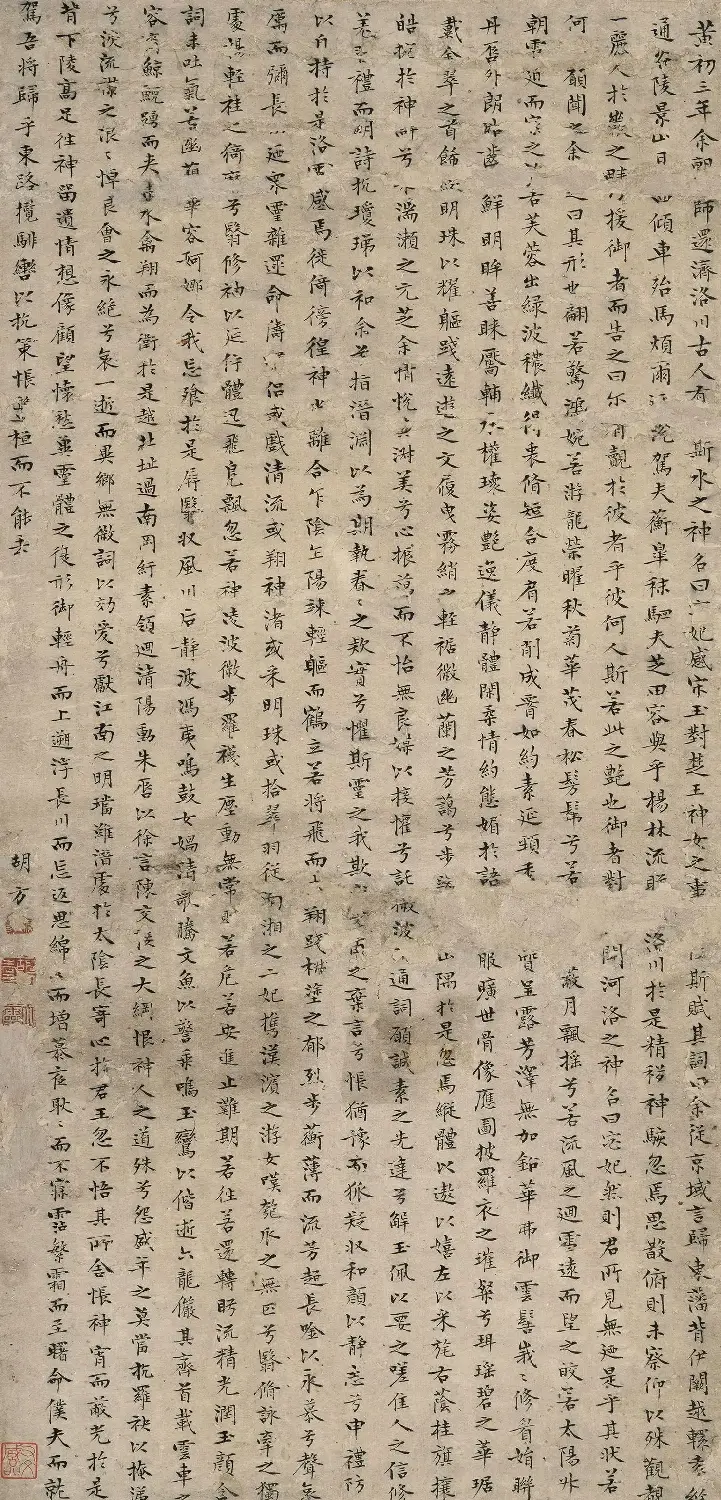 黃初三年余朝師還濟洛川古人有斯水之神名曰宓妃感宋玉對楚王神女之事斯賦其詞曰余從京域言歸東藩背伊闕越轘轅經
通谷陵景山日西傾車殆馬煩爾稅駕夫蘅皋秣駟夫芝田容與乎楊林流眄洛川於是精移神駭忽焉思散俯則未察仰以殊觀覩
一麗人於巖之畔援御者而告之曰尔有覿於彼者乎彼何人斯若此之艷也御者對聞河洛之神名曰宓妃然則君所見無迺是乎其狀若
何願聞之余之曰其形也翩若驚鴻婉若游龍榮曜秋菊華茂春松髣髴兮若蔽月飄搖兮若流風之迴雪遠而望之皎若太陽升
朝霞迫而察之若芙蓉出綠波穠纖得衷脩短合度肩若削成腰如約素延頸秀質呈露芳澤無加鉛華弗御雲髻峩〻修眉娟聯
丹唇外朗皓齒鮮明眸善睞靨輔承權瓌姿艷逸儀靜體閑柔情約態媚於語服曠世骨像應圖披羅衣之璀粲兮珥瑤碧之華琚
戴金翠之首飾綴明珠以耀軀踐遠遊之文履曳霧綃之輕裾微幽蘭之芳藹兮步踟山隅於是忽焉縱體以遨以嬉左以采旄右蔭桂旗攘
皓腕於神滸兮湍瀨之元芝余情悅其淑美兮心振蕩而不怡無良媒以接懽兮託微波通詞願誠素之先達兮解玉佩以要之嗟佳人之信修
羌習禮而明詩抗瓊珶以和余兮指潛淵以為期執眷〻之款實兮懼斯靈之我欺交甫之棄言兮悵猶豫而狐疑收和顏以靜志兮申禮防
以自持於是洛靈感焉徙倚徬徨神光離合乍陰乍陽竦輕軀而鶴立若將飛而未翔踐椒塗之郁烈步蘅薄而流芳超長唫以永慕兮聲哀
厲而彌長迺眾靈雜遝命儔嘯侶或戲清流或翔神渚或采明珠或拾翠羽從南湘之二妃攜漢濱之游女嘆匏瓜之無匹兮詠牽之獨
處揚輕袿之猗靡兮翳修袖以延佇體迅飛鳧飄忽若神淩波微步羅襪生塵動無常則若危若安進止難期若往若還轉眄流精光潤玉顏含
詞未吐氣若幽蘭華容婀娜令我忘飡於是屏翳收風川后靜波馮夷鳴鼓女媧清歌騰文魚以警乘鳴玉鸞以偕逝六龍儼其齊首載雲車
容裔鯨鯢踴而夾轂水禽翔而為衛於是越北沚過南岡紆素領迴清陽動朱唇以徐言陳交接之大綱恨神人之道殊兮怨盛年之莫當抗羅袂以掩涕
兮淚流襟之浪〻悼良會之永絕兮哀一逝而異鄉無微詞以效愛兮獻江南之明璫雖潛處於太陰長寄心於君王忽不悟其所舍悵神宵而蔽光於是
背下陵高足往神留遺情想像顧望懷愁冀靈體之復形御輕舟而上遡浮長川而忘返思綿而增慕夜耿〻而不寐霑繁霜而至曙命僕夫而就
駕吾將歸乎東路攬騑轡以抗策悵盤桓而不能去
胡方